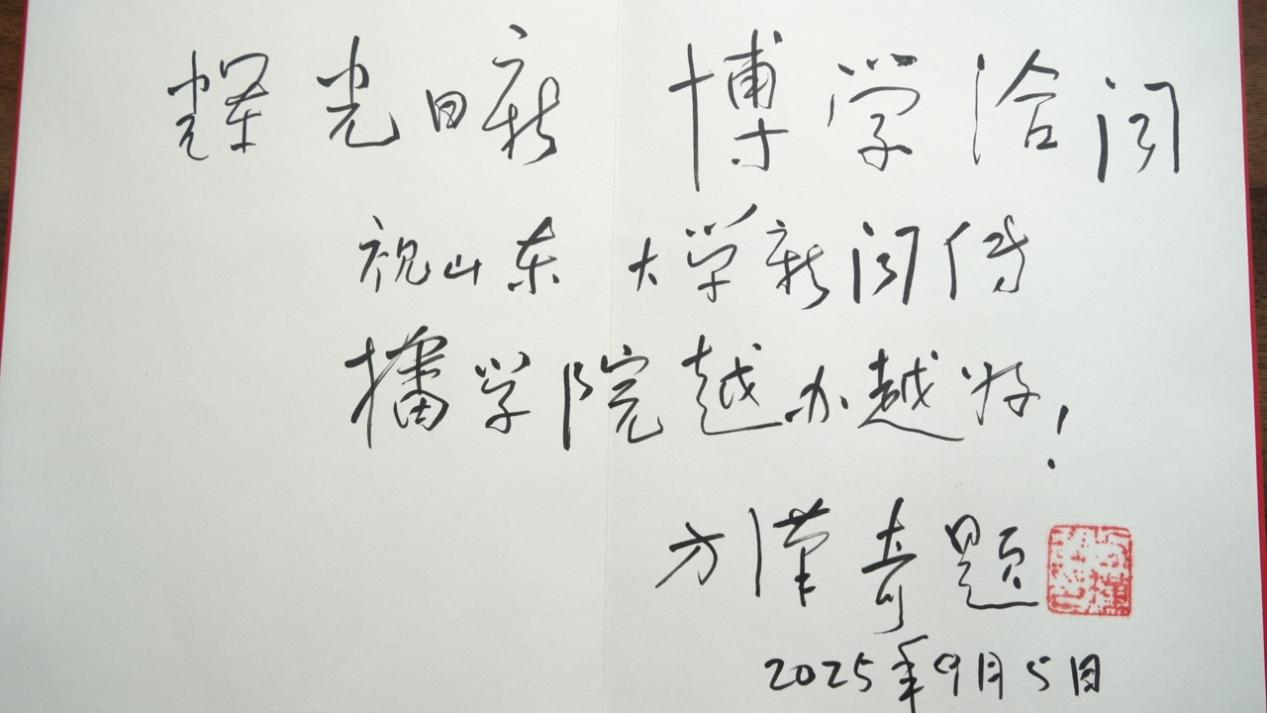 辉光日新 博学洽闻
祝山东大学新闻传
播学院越办越好!
方汉奇题
2025年9月5日